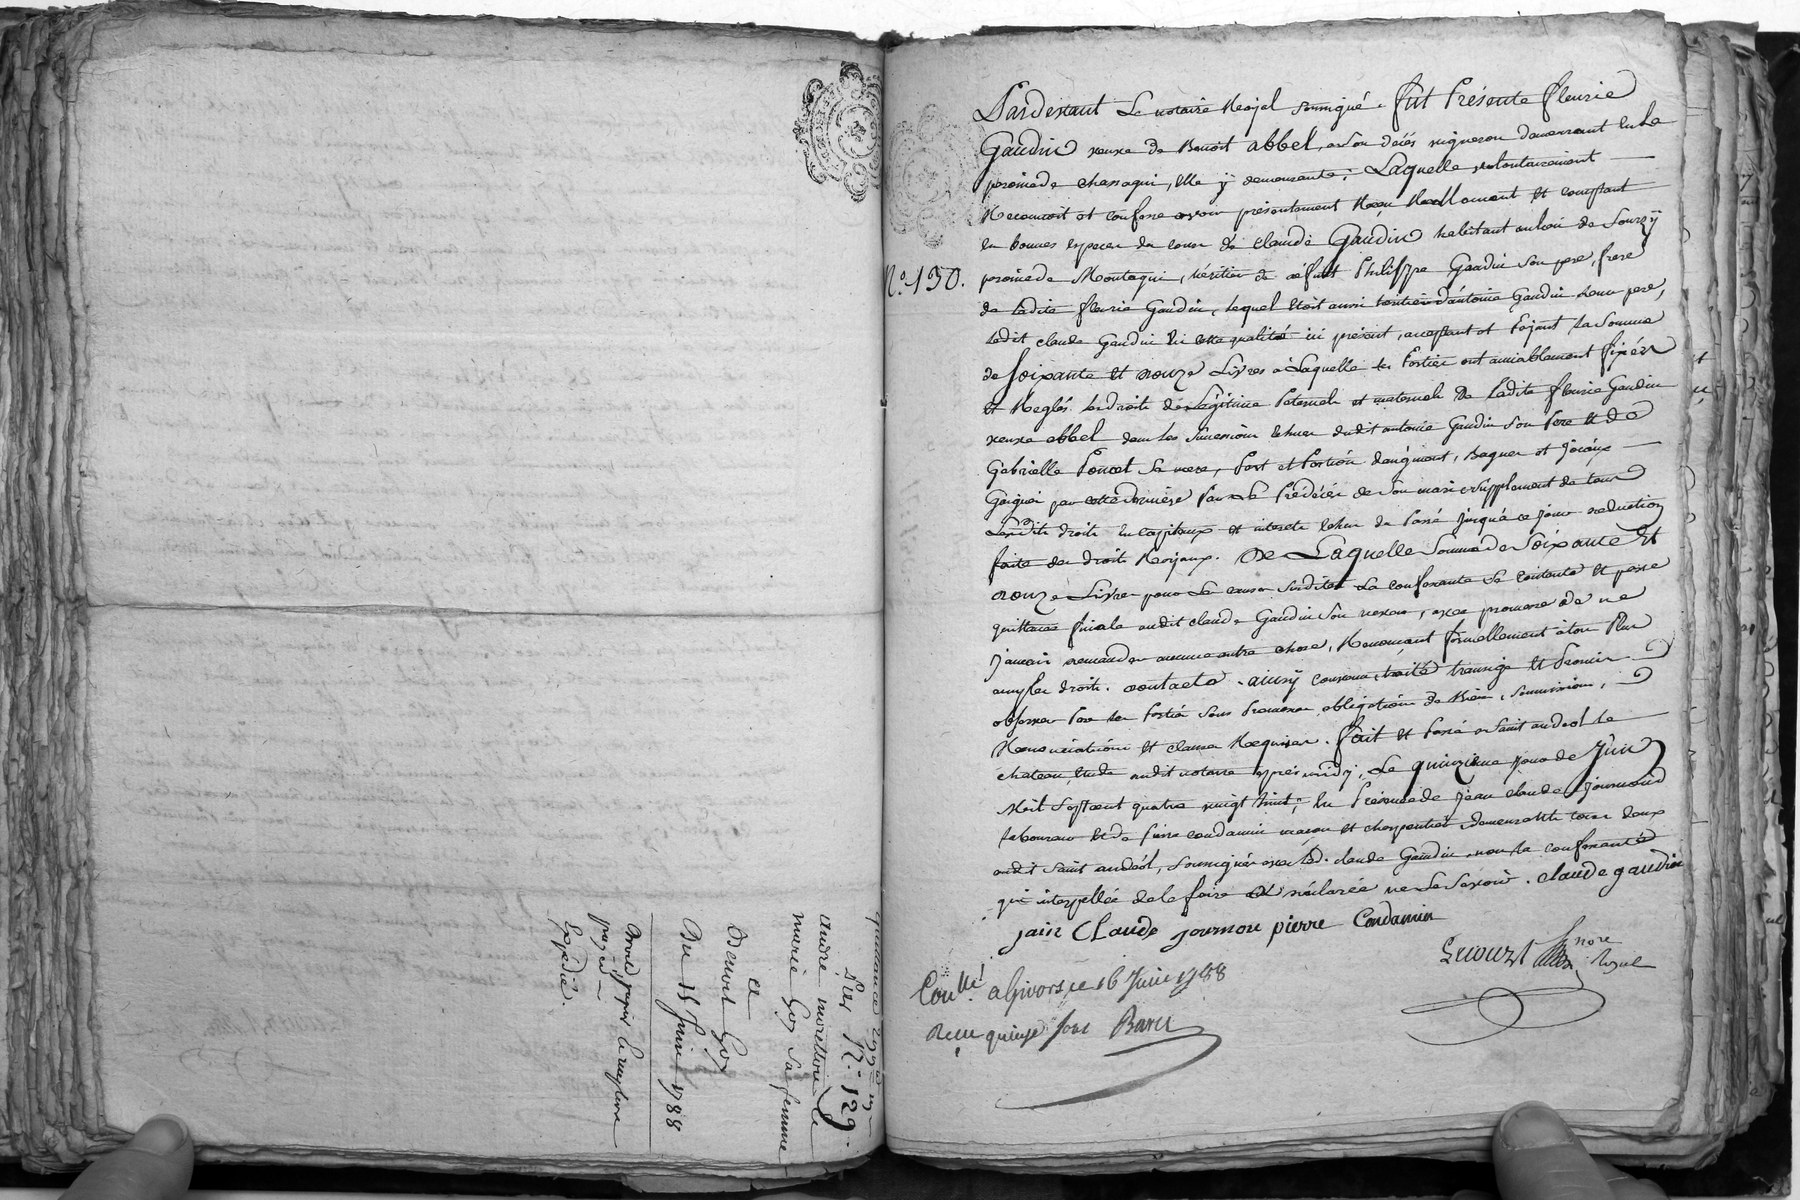 quittance
Pier N.° 129.
andré moretton
marie Goy sa femme
a
Benoit Goy
Du 15 Juin 1788
Expédié.
N.° 130.
Pardevant Le notaire Royal soussigné. fut Présente fleurie
Gaudin veuve de Benoit abbel, a son décés vigneron demeurant en la
paroisse de chassagni, elle ÿ demeurante; Laquelle volontairement
Reconnoit et confesse avoir présentement Reçu Réellement et comptant
en bonnes especes du cours de claude Gaudin habitant au lieu de Sourzÿ
paroisse de Montagni, héritier de défunt Philippe Gaudin son pere, frere
de ladite fleurie Gaudin, lequel étoit aussi heritier d'antoine Gaudin leur pere,
ledit claude Gaudin en cette qualité ici présent, acceptant et Païant la somme
de soixante et douze Livres à Laquelle les Parties ont amiablement fixés
et Reglés les droits de Légitime Paternels et maternels de Ladite fleurie Gaudin
veuve abbel dans les successions echues dudit antoine Gaudin son Pere et de
Gabrielle Poncet sa mere, Part et Portion d'augment, Bagues et joiaux
Gagnés par cette derniere Par Le Prédécés de son mari et supplement de tous
Lesdits droits en capitaux et interets echus du Passé jusqu'à ce jour déduction
faite des droits Roÿaux. De Laquelle somme de soixante et
douze Livres pour Les causes susdites La confessante se contente et passe
quittance finale audit claude Gaudin son neveu, avec promesse de ne
jamais demander aucune autre chose, Renonçant formellement à tous Plus
amples droits. dont acte. ainsÿ convenu, traité transigé et Promis
observer Par les Parties sous Promesses obligations de Biens, soumissions,
Renonciations et clauses Requises. fait et Passé a saint andeol le
chateau, etude dudit notaire après midÿ, Le quinzieme jour de Juin
Mil sept cent quatre vingt huit; en Présence de Jean claude Journoud
laboureur et de Pierre condamin maçon et charpentier demeurants tous deux
audit saint andeol, soussignés avec led. claude Gaudin, non la confessante
qui interpellée de le faire a déclarée ne le savoir. claude gaudin
jain Claude journou pierre Condamin
nore Royal
Con.lé a Givors, ce 16 Juin 1788
Reçu quinze sous Baret